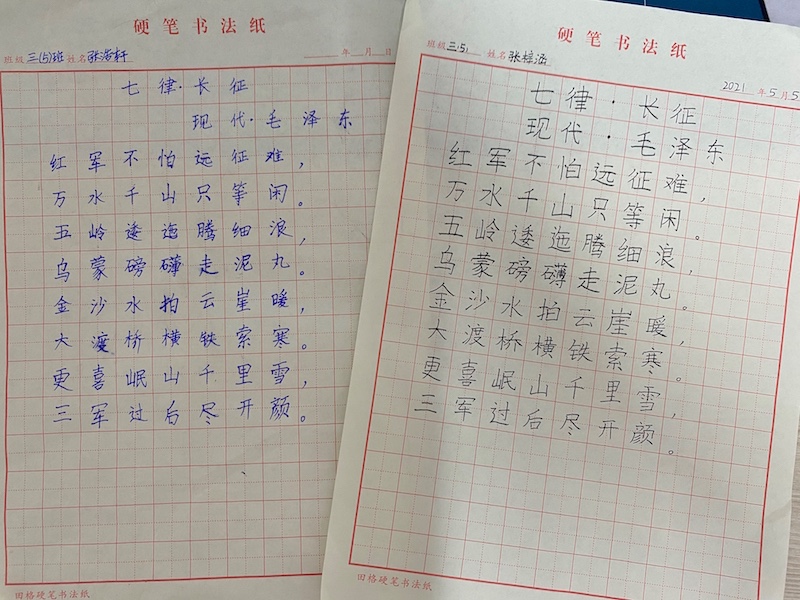 硬笔书法纸
班级 三(5)班 姓名 张浩轩 年 月 日
七律·长征
现代·毛泽东
红军不怕远征难，
万水千山只等闲。
五岭逶迤腾细浪，
乌蒙磅礴走泥丸。
金沙水拍云崖暖，
大渡桥横铁索寒。
更喜岷山千里雪，
三军过后尽开颜。
田格硬笔书法纸
硬笔书法纸
班级 三(5) 姓名 张梓涵
2021 年 5 月 5
七律·长征
现代·毛泽东
红军不怕远征难，
万水千山只等闲。
五岭逶迤腾细浪，
乌蒙磅礴走泥丸。
金沙水拍云崖暖，
大渡桥横铁索寒。
更喜岷山千里雪，
三军过后尽开颜。
田格硬笔书法纸